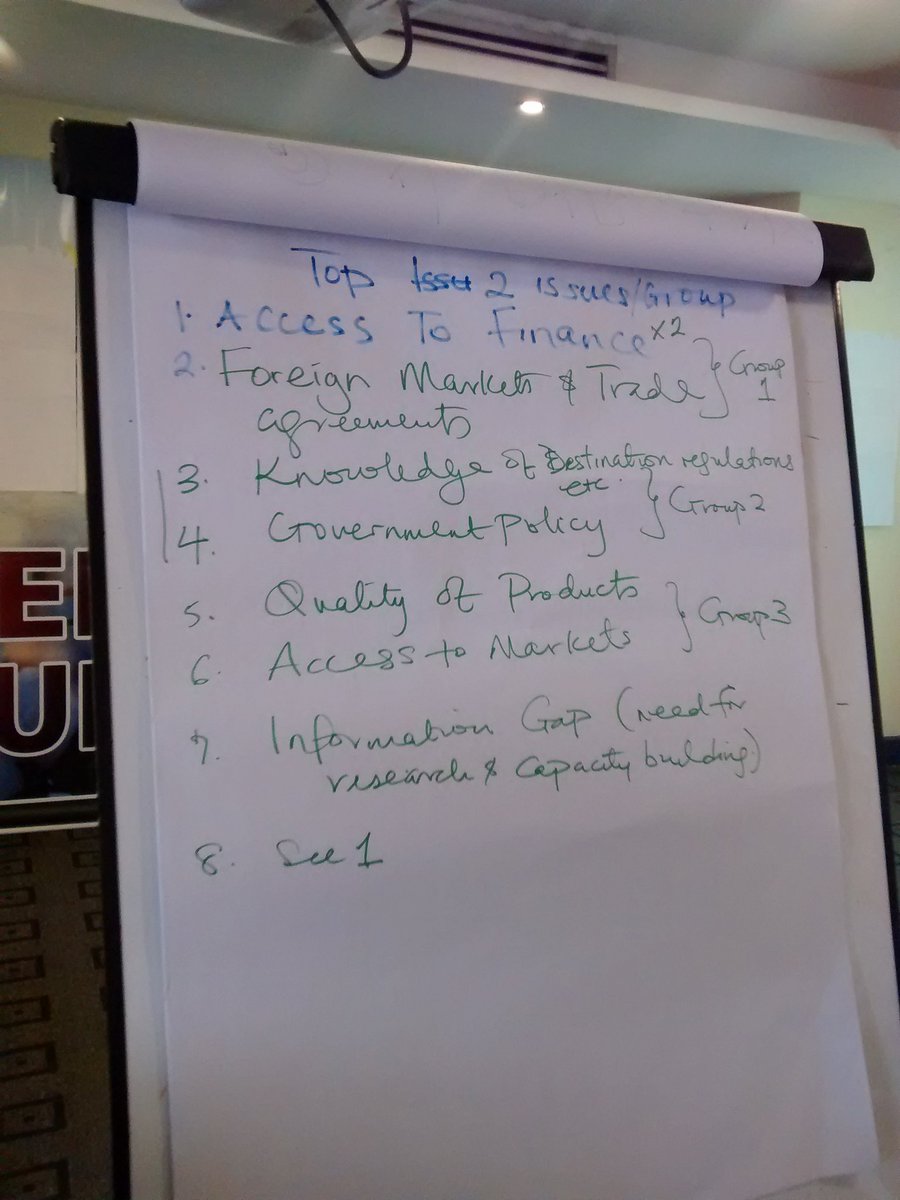 Top 2 issues/Group
1. Access To Finance x2
2. Foreign Markets & Trade
agreements
} Group
1
3. Knowledge of Destination regulations
etc.
4. Government Policy
} Group 2
5. Quality of Products
6. Access to Markets
} Group 3
7. Information Gap (need for
research & capacity building)
8. See 1